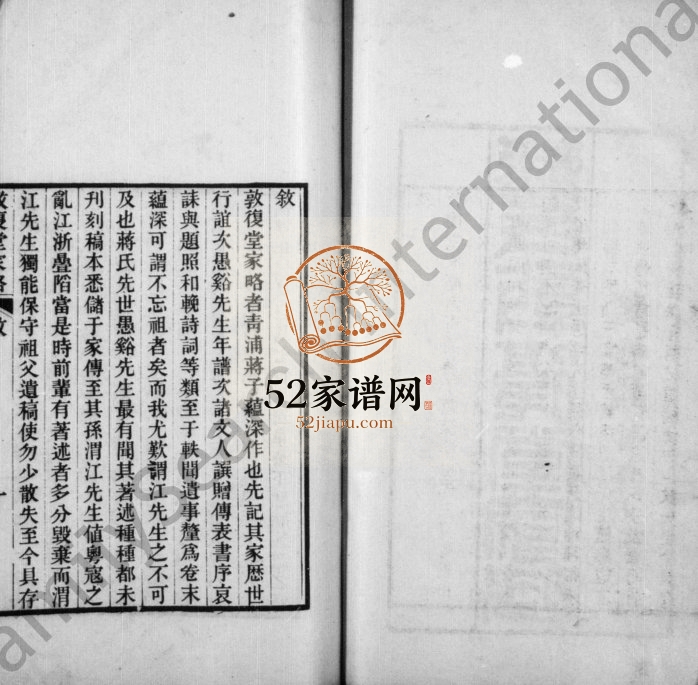 敘
敦復堂家略者青浦蔣子蘊深作也先記其家歷世
行誼次愚谿先生年譜次諸文人譔贈傳表書序哀
誄與題照和輓詩詞等類至于軼聞遺事釐爲卷末
蘊深可謂不忘祖者矣而我尤歎謂江先生之不可
及也蔣氏先世愚谿先生最有聞其著述種種都未
刋刻稿本悉儲于家傳至其孫渭江先生値粵寇之
亂江浙疊陷當是時前輩有著述者多分毀棄而渭
江先生獨能保守祖父遺稿使勿少散失至今具存
敦復堂家略 敘 一
52家谱网
52jiapu.com
familysearch international